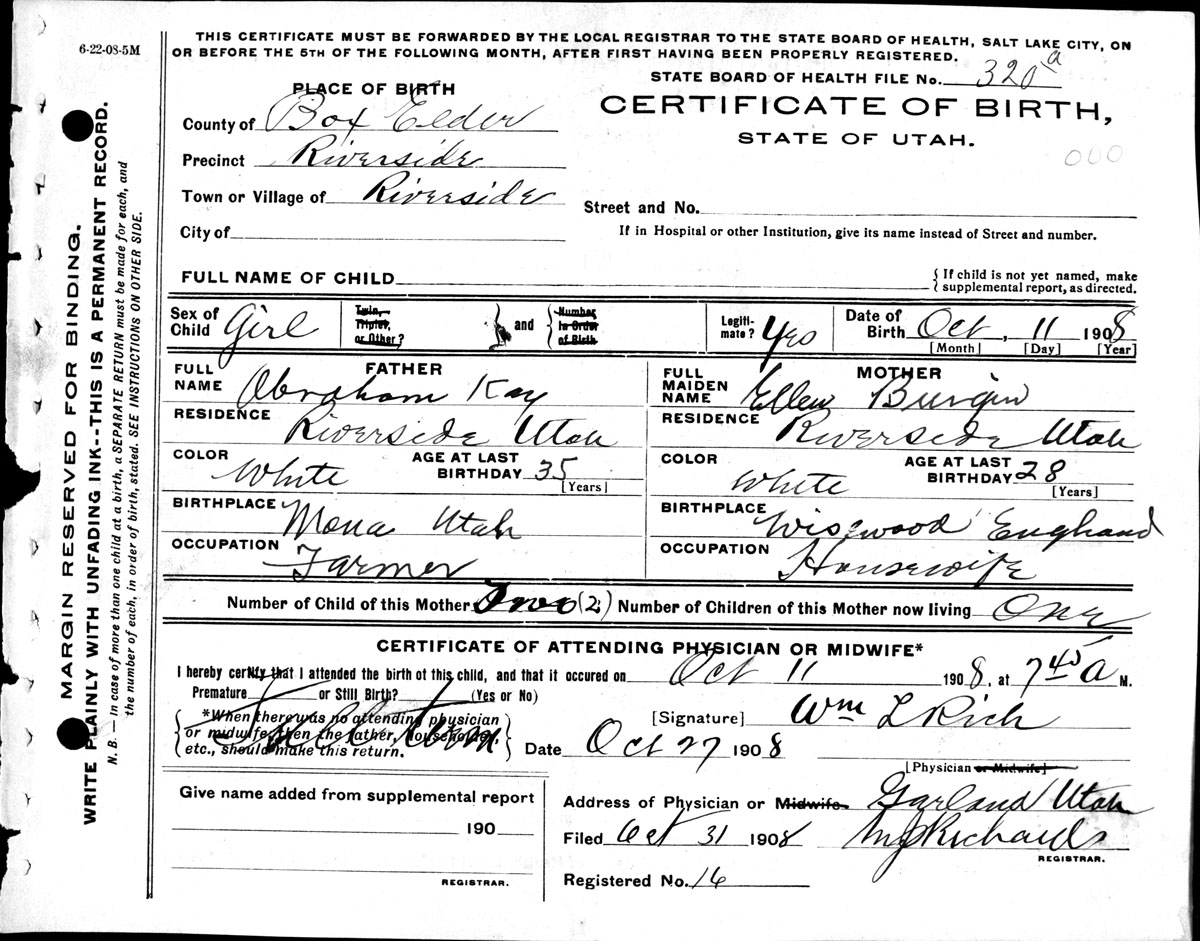 6-22-08-5M
THIS CERTIFICATE MUST BE FORWARDED BY THE LOCAL REGISTRAR TO THE STATE BOARD OF HEALTH, SALT LAKE CITY, ON
OR BEFORE THE 5TH OF THE FOLLOWING MONTH, AFTER FIRST HAVING BEEN PROPERLY REGISTERED.
STATE BOARD OF HEALTH FILE No. 320 a
PLACE OF BIRTH
CERTIFICATE OF BIRTH,
STATE OF UTAH.
000
County of Box Elder
Precinct Riverside
Town or Village of Riverside
Street and No.
City of
If in Hospital or other Institution, give its name instead of Street and number.
FULL NAME OF CHILD
{ If child is not yet named, make
supplemental report, as directed.
Sex of Child Girl
Twin, Triplet, or Other?
and
Number in Order of Birth
Legiti-mate? Yes
Date of Birth Oct, 11 1908
[Month] [Day] [Year]
FATHER
FULL NAME Abraham Kay
MOTHER
FULL MAIDEN NAME Ellen Burgin
RESIDENCE Riverside Utah
RESIDENCE Riverside Utah
COLOR White
AGE AT LAST BIRTHDAY 35
[Years]
COLOR White
AGE AT LAST BIRTHDAY 28
[Years]
BIRTHPLACE Mona Utah
BIRTHPLACE England
OCCUPATION Farmer
OCCUPATION Housewife
Number of Child of this Mother Two (2) Number of Children of this Mother now living One
CERTIFICATE OF ATTENDING PHYSICIAN OR MIDWIFE*
I hereby certify that I attended the birth of this child, and that it occured on Oct 11 1908, at 7 45 A M.
Premature or Still Birth? (Yes or No)
Full term.
{ *When there was no attending physician
or midwife, then the father, householder,
etc., should make this return. }
[Signature] Wm L Rich
Date Oct 27 1908
[Physician or Midwife]
Give name added from supplemental report
190
REGISTRAR.
Address of Physician or Midwife. Garland Utah
Filed Oct 31 1908 Richards
REGISTRAR.
Registered No. 16
MARGIN RESERVED FOR BINDING.
WRITE PLAINLY WITH UNFADING INK--THIS IS A PERMANENT RECORD.
N. B. — In case of more than one child at a birth, a SEPARATE RETURN must be made for each, and
the number of each, in order of birth, stated. SEE INSTRUCTIONS ON OTHER SIDE.